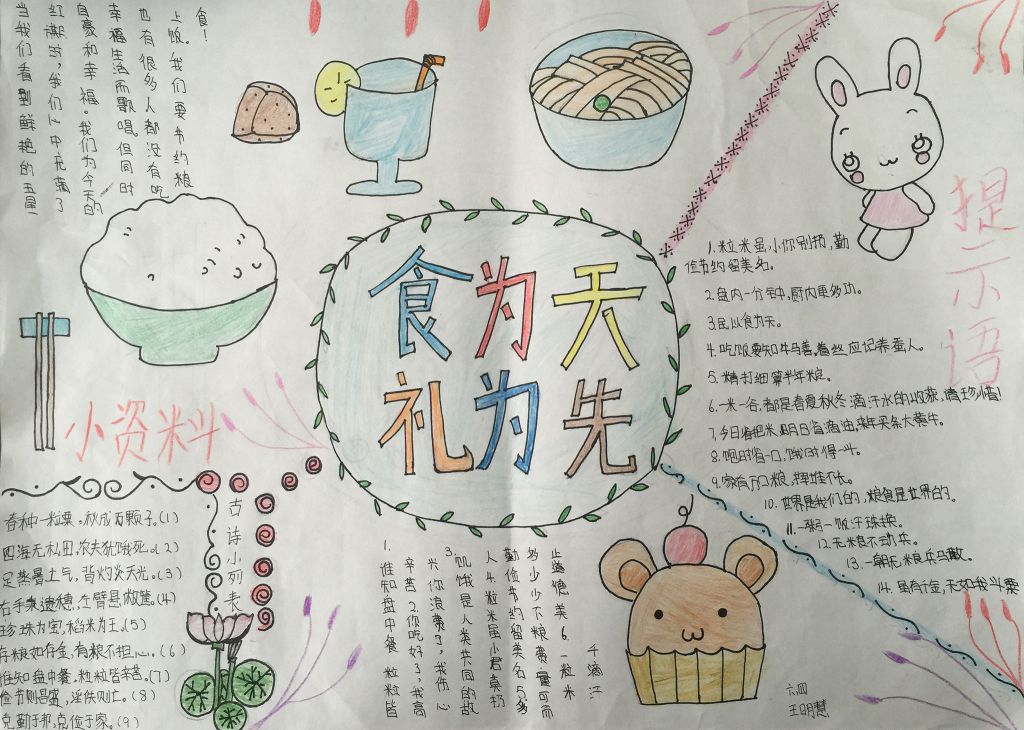 食为天
礼为先
当我们看到鲜艳的五星
红旗时,我们心中充满了
自豪和幸福。我们为今天的
幸福生活而歌唱。但同时
也有很多人都没有吃
上饭。我们要节约粮
食!
小资料
古诗小列表
春种一粒粟。秋成万颗子。(1)
四海无私田,农夫犹饿死。(2)
足蒸暑土气,背灼炎天光。(3)
右手秉遗穗,左臂悬敝筐。(4)
珍珠为宝,稻米为王。(5)
存粮如存金,有粮不担心。(6)
谁知盘中餐。粒粒皆辛苦。(7)
俭节则昌盛,淫佚则亡。(8)
克勤于邦,克俭于家。(9)
1.谁知盘中餐 粒粒皆
辛苦2.你吃好了,我高
兴你浪费了,我伤心
3.饥饿是人类共同的敌
人4.粒米虽小君莫扔
勤俭节约留美名5.多
多少少不粮费量可而
止德美6.一粒米
千滴汗
提示语
1.粒米虽小你别扔,勤
俭节约留美名。
2.盘内一分钟,厨内更多功。
3.民以食为天。
4.吃饭要知牛马善,着丝应记养蚕人。
5.精打细算半年粮。
6.一米一谷,都是春夏秋冬滴汗水的收获,请珍惜!
7.今日省把米,明日省滴油,来年买条大黄牛。
8.饱时省一口,饿时得一斗。
9.家有万口粮,挥娃不长。
10.世界是我们的,粮食是世界的。
11.一粥一饭汗珠换。
12.无粮不动兵。
13.一朝无粮兵马散。
14.虽有千金,无如我斗粟
六四
王明慧